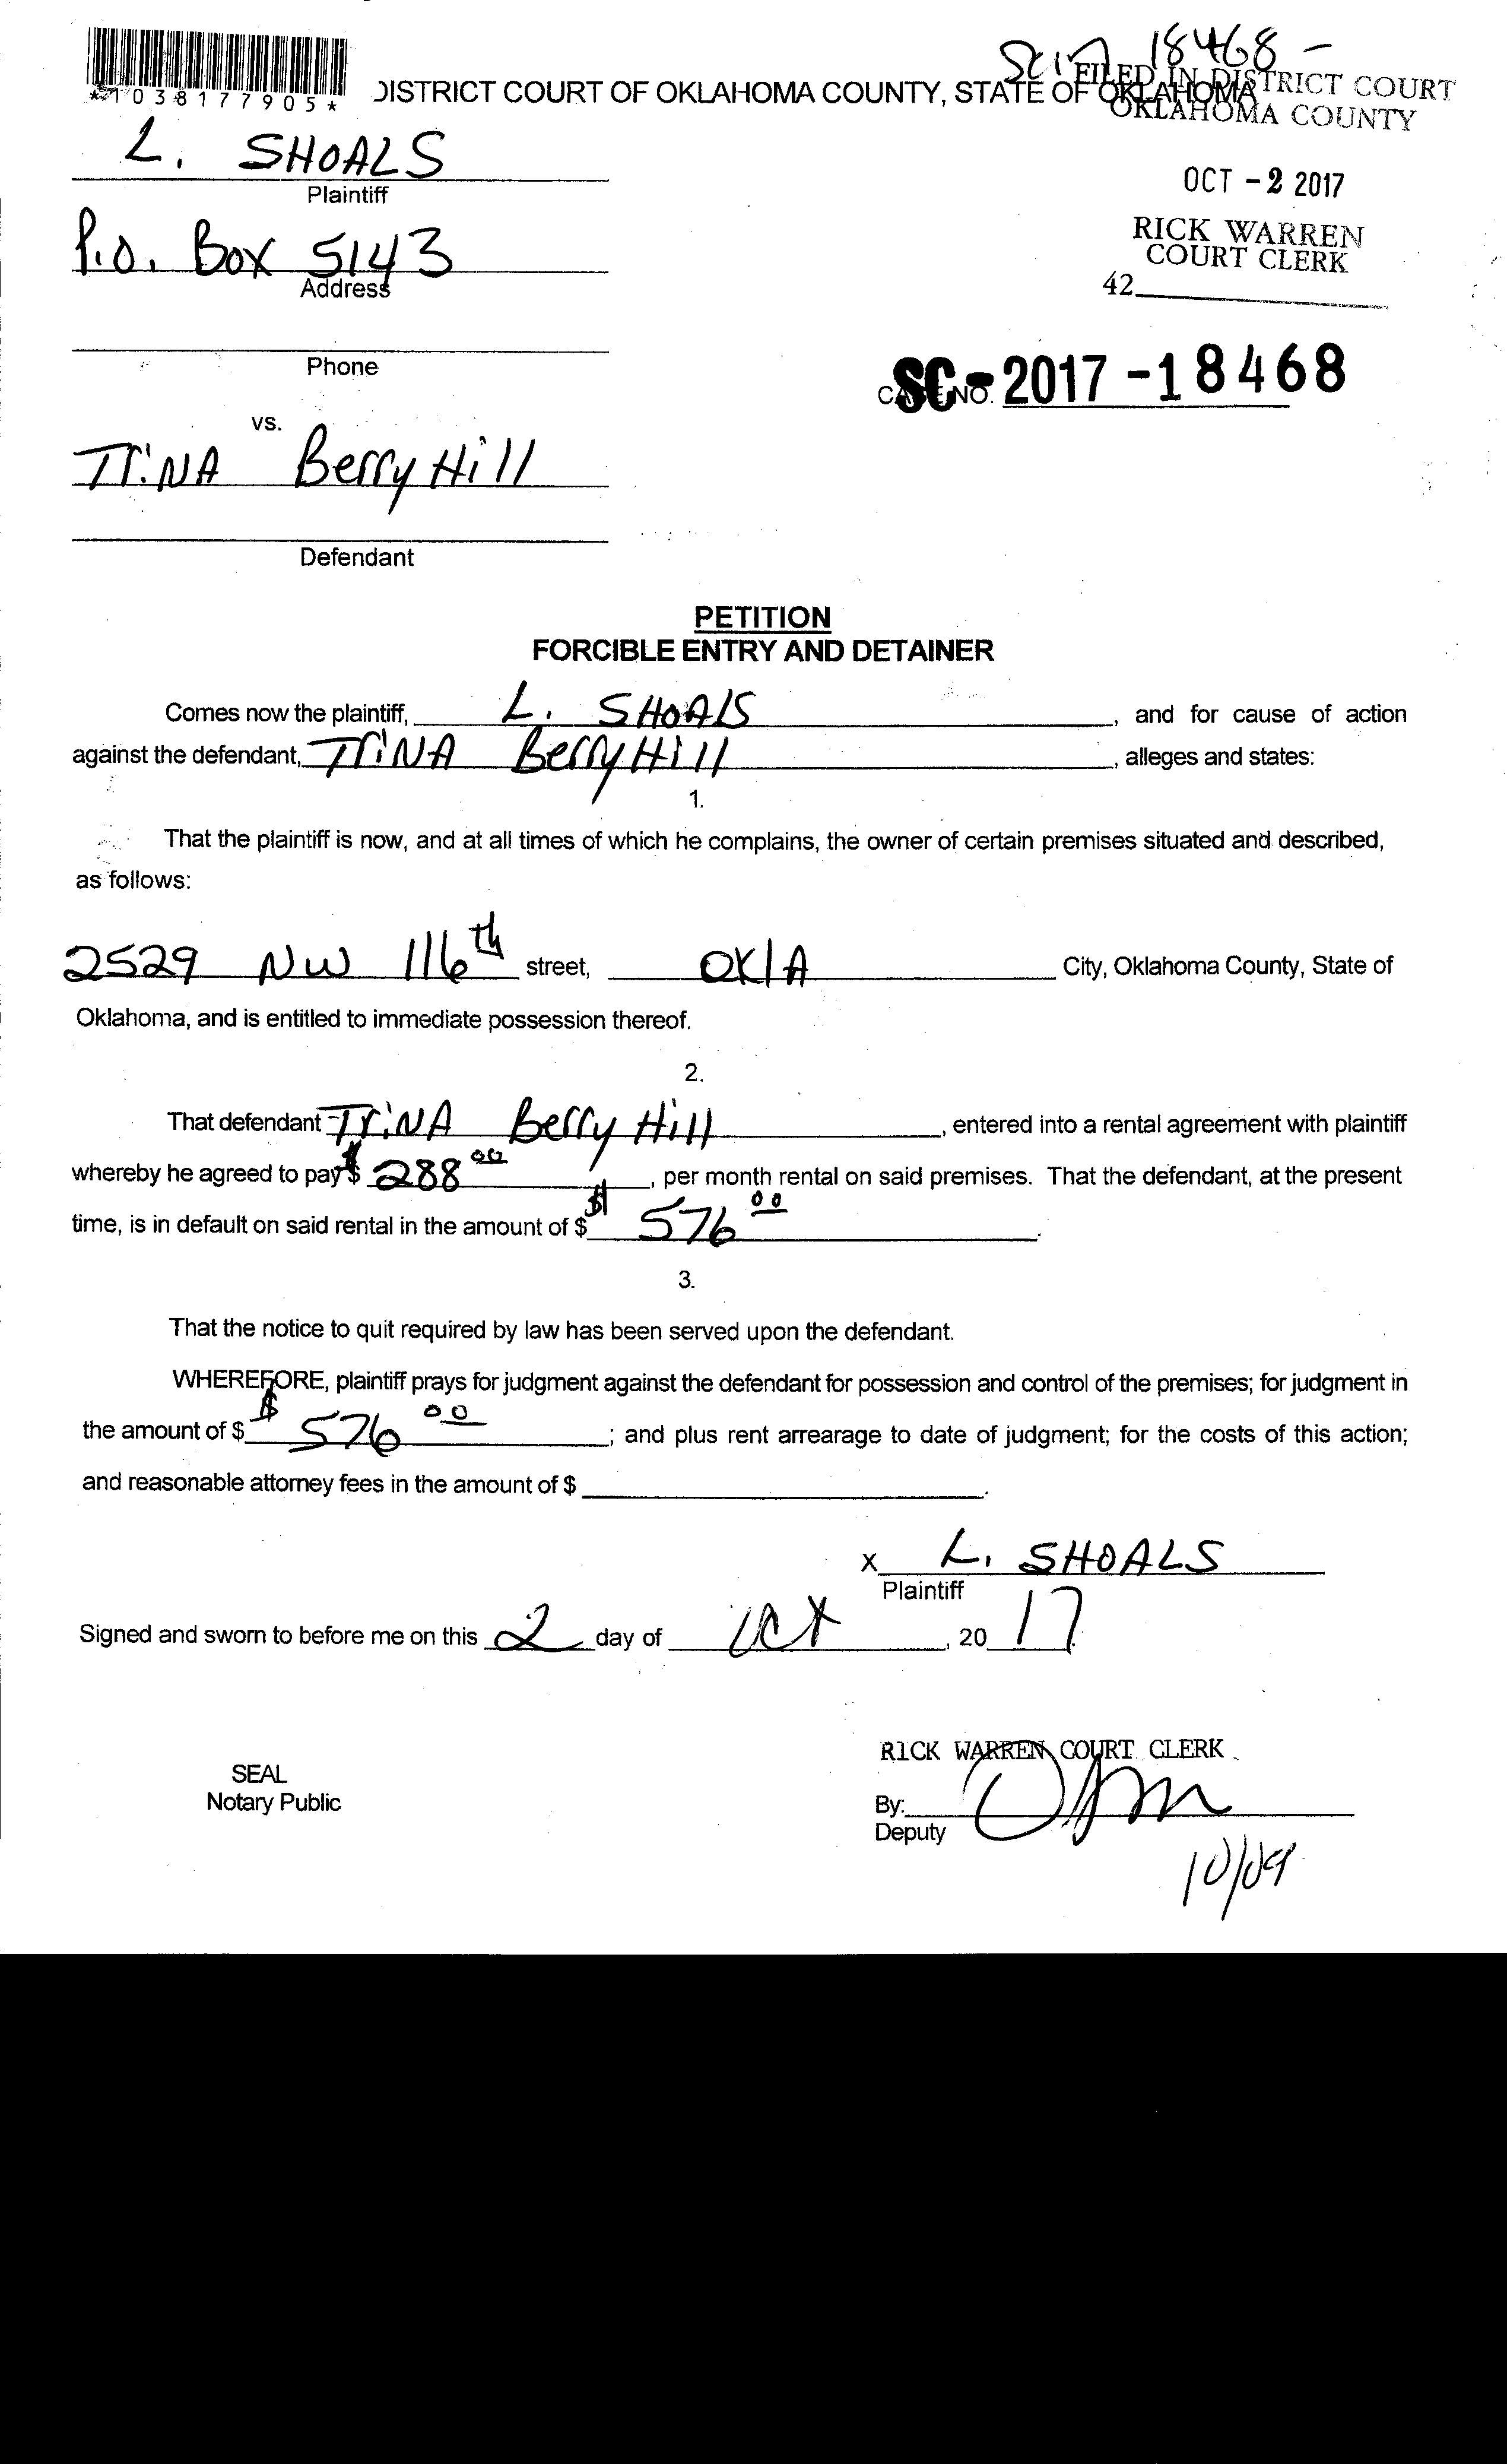 SC17 18468 -
*1038177905*
DISTRICT COURT OF OKLAHOMA COUNTY, STATE OF OKLAHOMA
FILED IN DISTRICT COURT
OKLAHOMA COUNTY
L. SHOALS
Plaintiff
OCT - 2 2017
P.O. Box 5143
Address
RICK WARREN
COURT CLERK
42
Phone
CASE NO. SC - 2017 - 18468
vs.
TriNA Berry Hill
Defendant
PETITION
FORCIBLE ENTRY AND DETAINER
Comes now the plaintiff, L. SHOALS, and for cause of action
against the defendant, TRiNA Berry Hill, alleges and states:
1.
That the plaintiff is now, and at all times of which he complains, the owner of certain premises situated and described,
as follows:
2529 NW 116th street, OKlA City, Oklahoma County, State of
Oklahoma, and is entitled to immediate possession thereof.
2.
That defendant TriNA Berry Hill, entered into a rental agreement with plaintiff
whereby he agreed to pay $ $ 288 00, per month rental on said premises. That the defendant, at the present
time, is in default on said rental in the amount of $ $ 576 00.
3.
That the notice to quit required by law has been served upon the defendant.
WHEREFORE, plaintiff prays for judgment against the defendant for possession and control of the premises; for judgment in
the amount of $ $ 576 00; and plus rent arrearage to date of judgment; for the costs of this action;
and reasonable attorney fees in the amount of $ .
X L. SHOALS
Plaintiff
Signed and sworn to before me on this 2 day of Oct, 20 17.
RICK WARREN COURT CLERK
SEAL
Notary Public
By:
Deputy
10/09